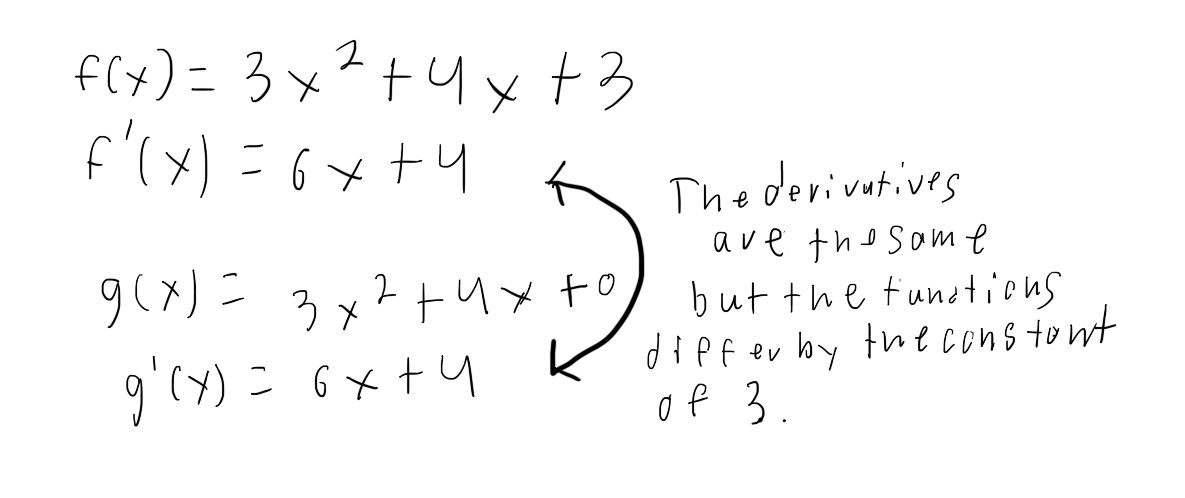 f(x) = 3x² + 4x + 3
f'(x) = 6x + 4
g(x) = 3x² + 4x + 0
g'(x) = 6x + 4
The derivatives
are the same
but the functions
differ by the constant
of 3.